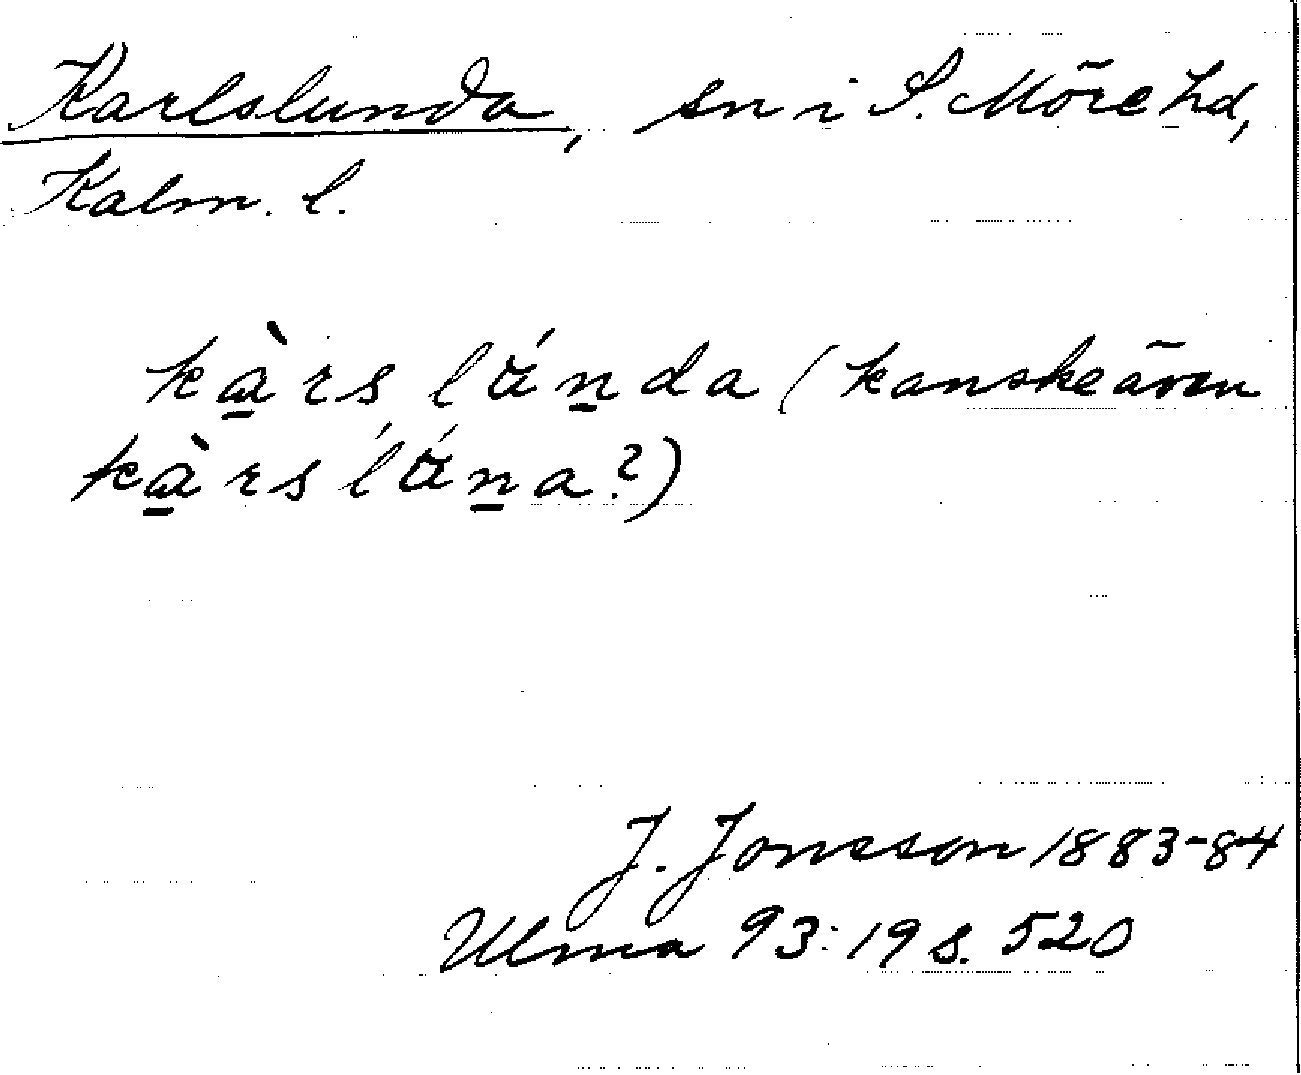 Karlslunda, sn i S. Möre hd,
Kalm. l.
kàrslúnda (kanske även
kàrslúna?)
J. Jonsson 1883-84
Ulma 93:19 s. 520